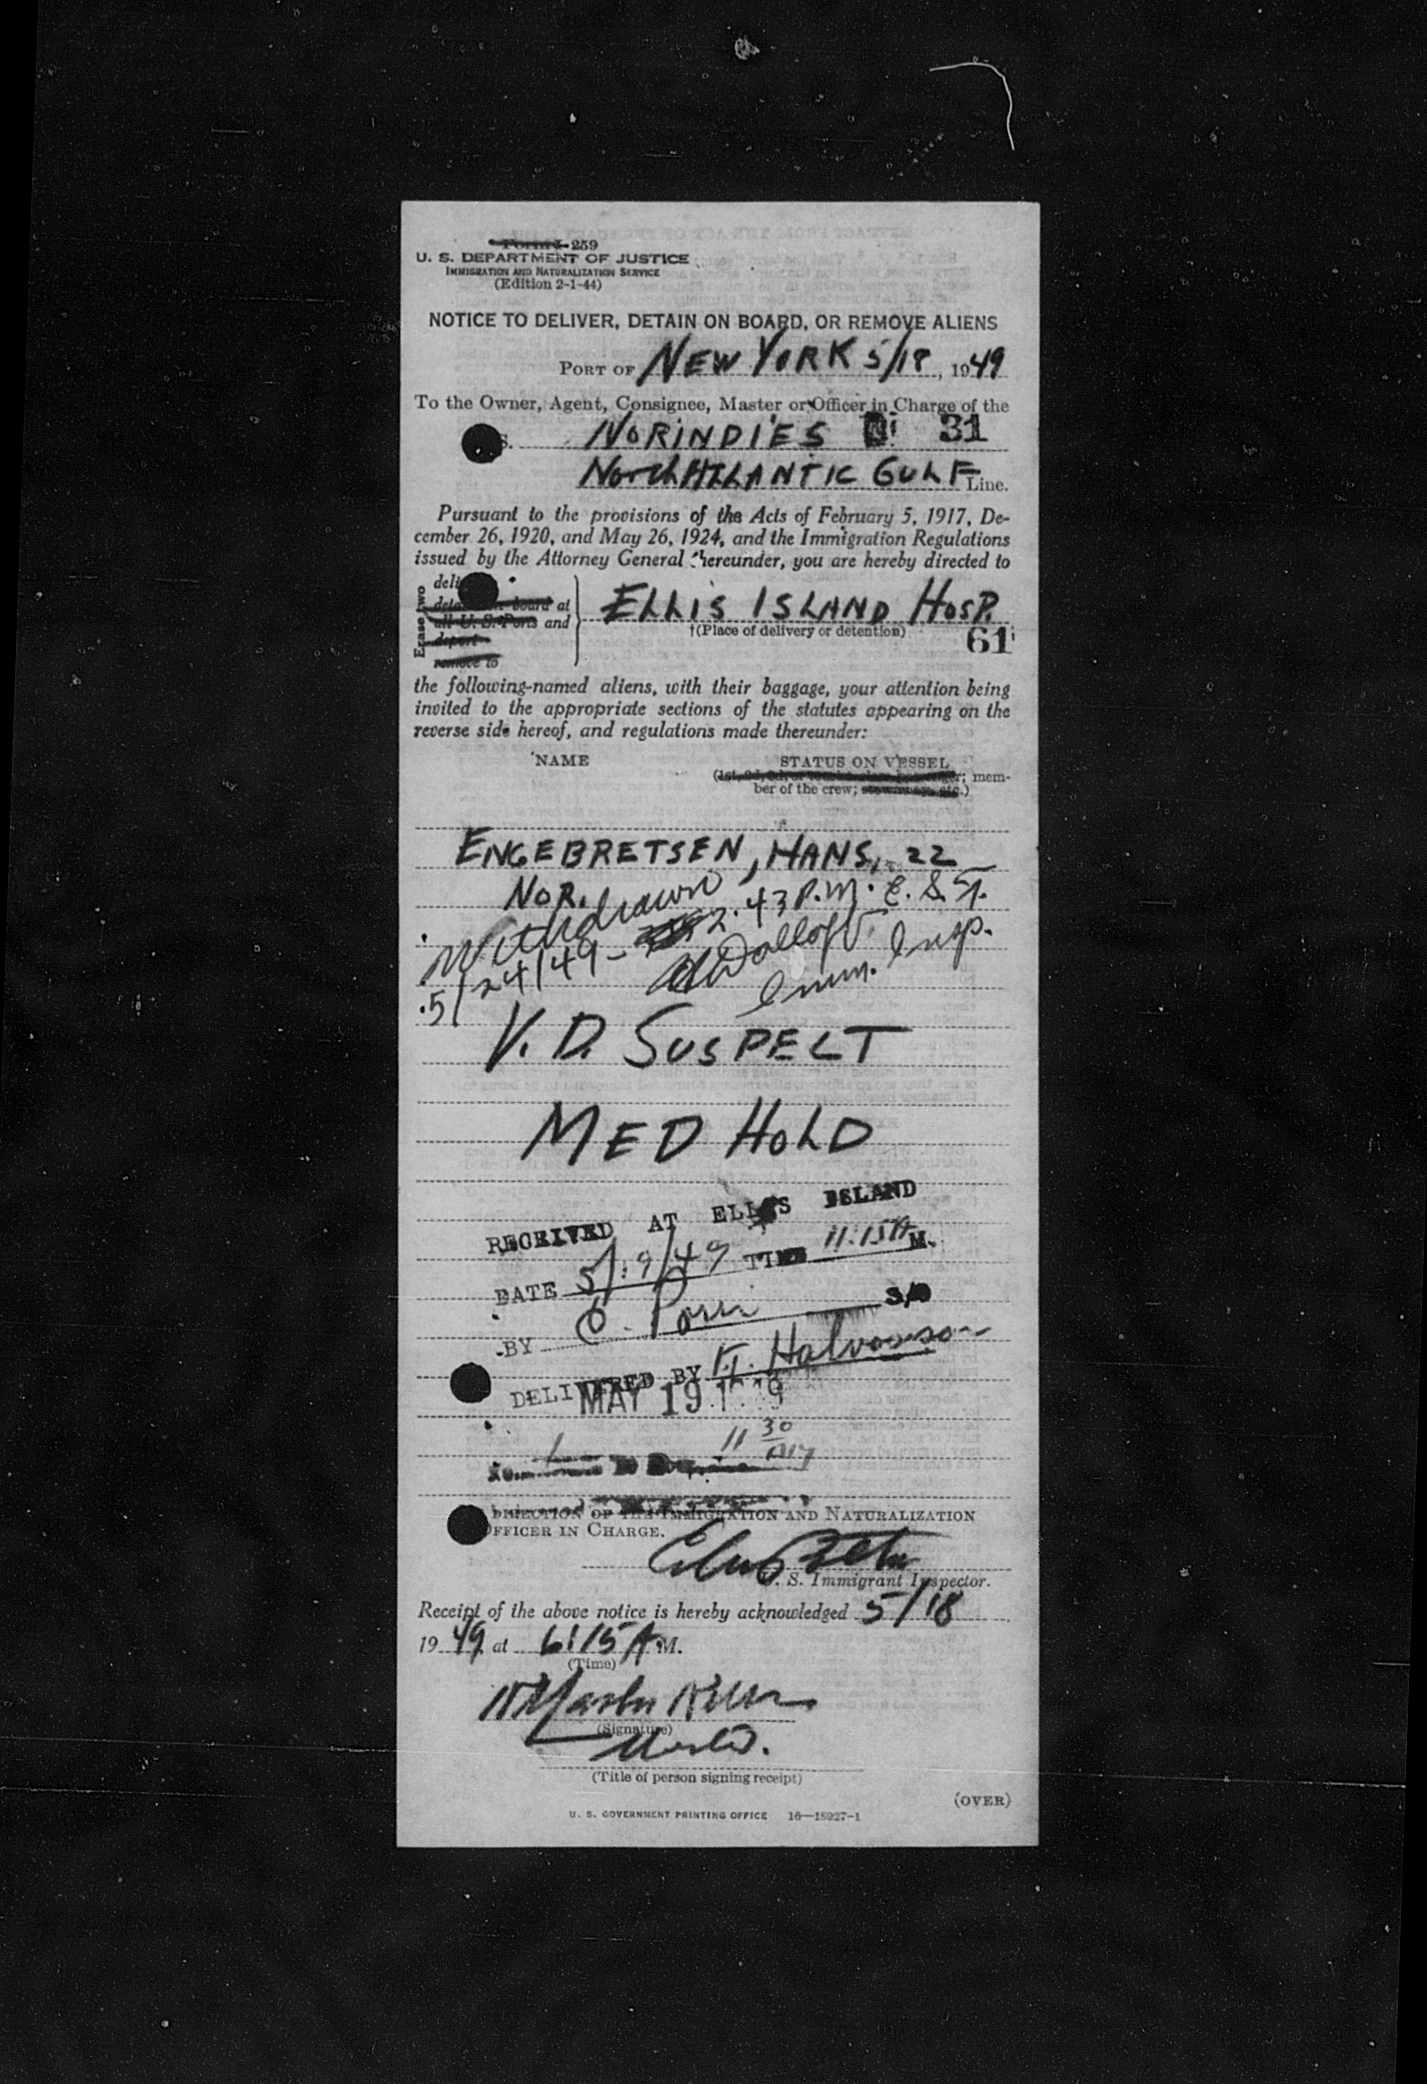 Form I-259
U. S. DEPARTMENT OF JUSTICE
IMMIGRATION AND NATURALIZATION SERVICE
(Edition 2-1-44)
NOTICE TO DELIVER, DETAIN ON BOARD, OR REMOVE ALIENS
PORT OF NEW YORK 5/18, 1949
To the Owner, Agent, Consignee, Master or Officer in Charge of the
S. NORINDIES 31
North ATLANTIC GULF Line.
Pursuant to the provisions of the Acts of February 5, 1917, De-
cember 26, 1920, and May 26, 1924, and the Immigration Regulations
issued by the Attorney General thereunder, you are hereby directed to
Erase two
deli
board at
all U. S. Ports and
deport
remove to
ELLIS ISLAND HOSP.
†(Place of delivery or detention)
61
the following-named aliens, with their baggage, your attention being
invited to the appropriate sections of the statutes appearing on the
reverse side hereof, and regulations made thereunder:
NAME STATUS ON VESSEL
mem-
ber of the crew;
ENGEBRETSEN, HANS, 22
NOR.
Withdrawn
5/24/49 - 2.43 P.M. E.S.T.
Imm. Insp.
V. D. SUSPECT
MED HOLD
RECEIVED AT ELLIS ISLAND
DATE 5/19/49 TIME 11:15 A M.
BY
DELIVERED BY Halvorson
MAY 19
11 30
DIRECTION OF THE IMMIGRATION AND NATURALIZATION
OFFICER IN CHARGE.
U. S. Immigrant Inspector.
Receipt of the above notice is hereby acknowledged 5/18
1949 at 6:15 A M.
(Time)
(Signature)
(Title of person signing receipt)
(OVER)
U. S. GOVERNMENT PRINTING OFFICE 16—18927-1